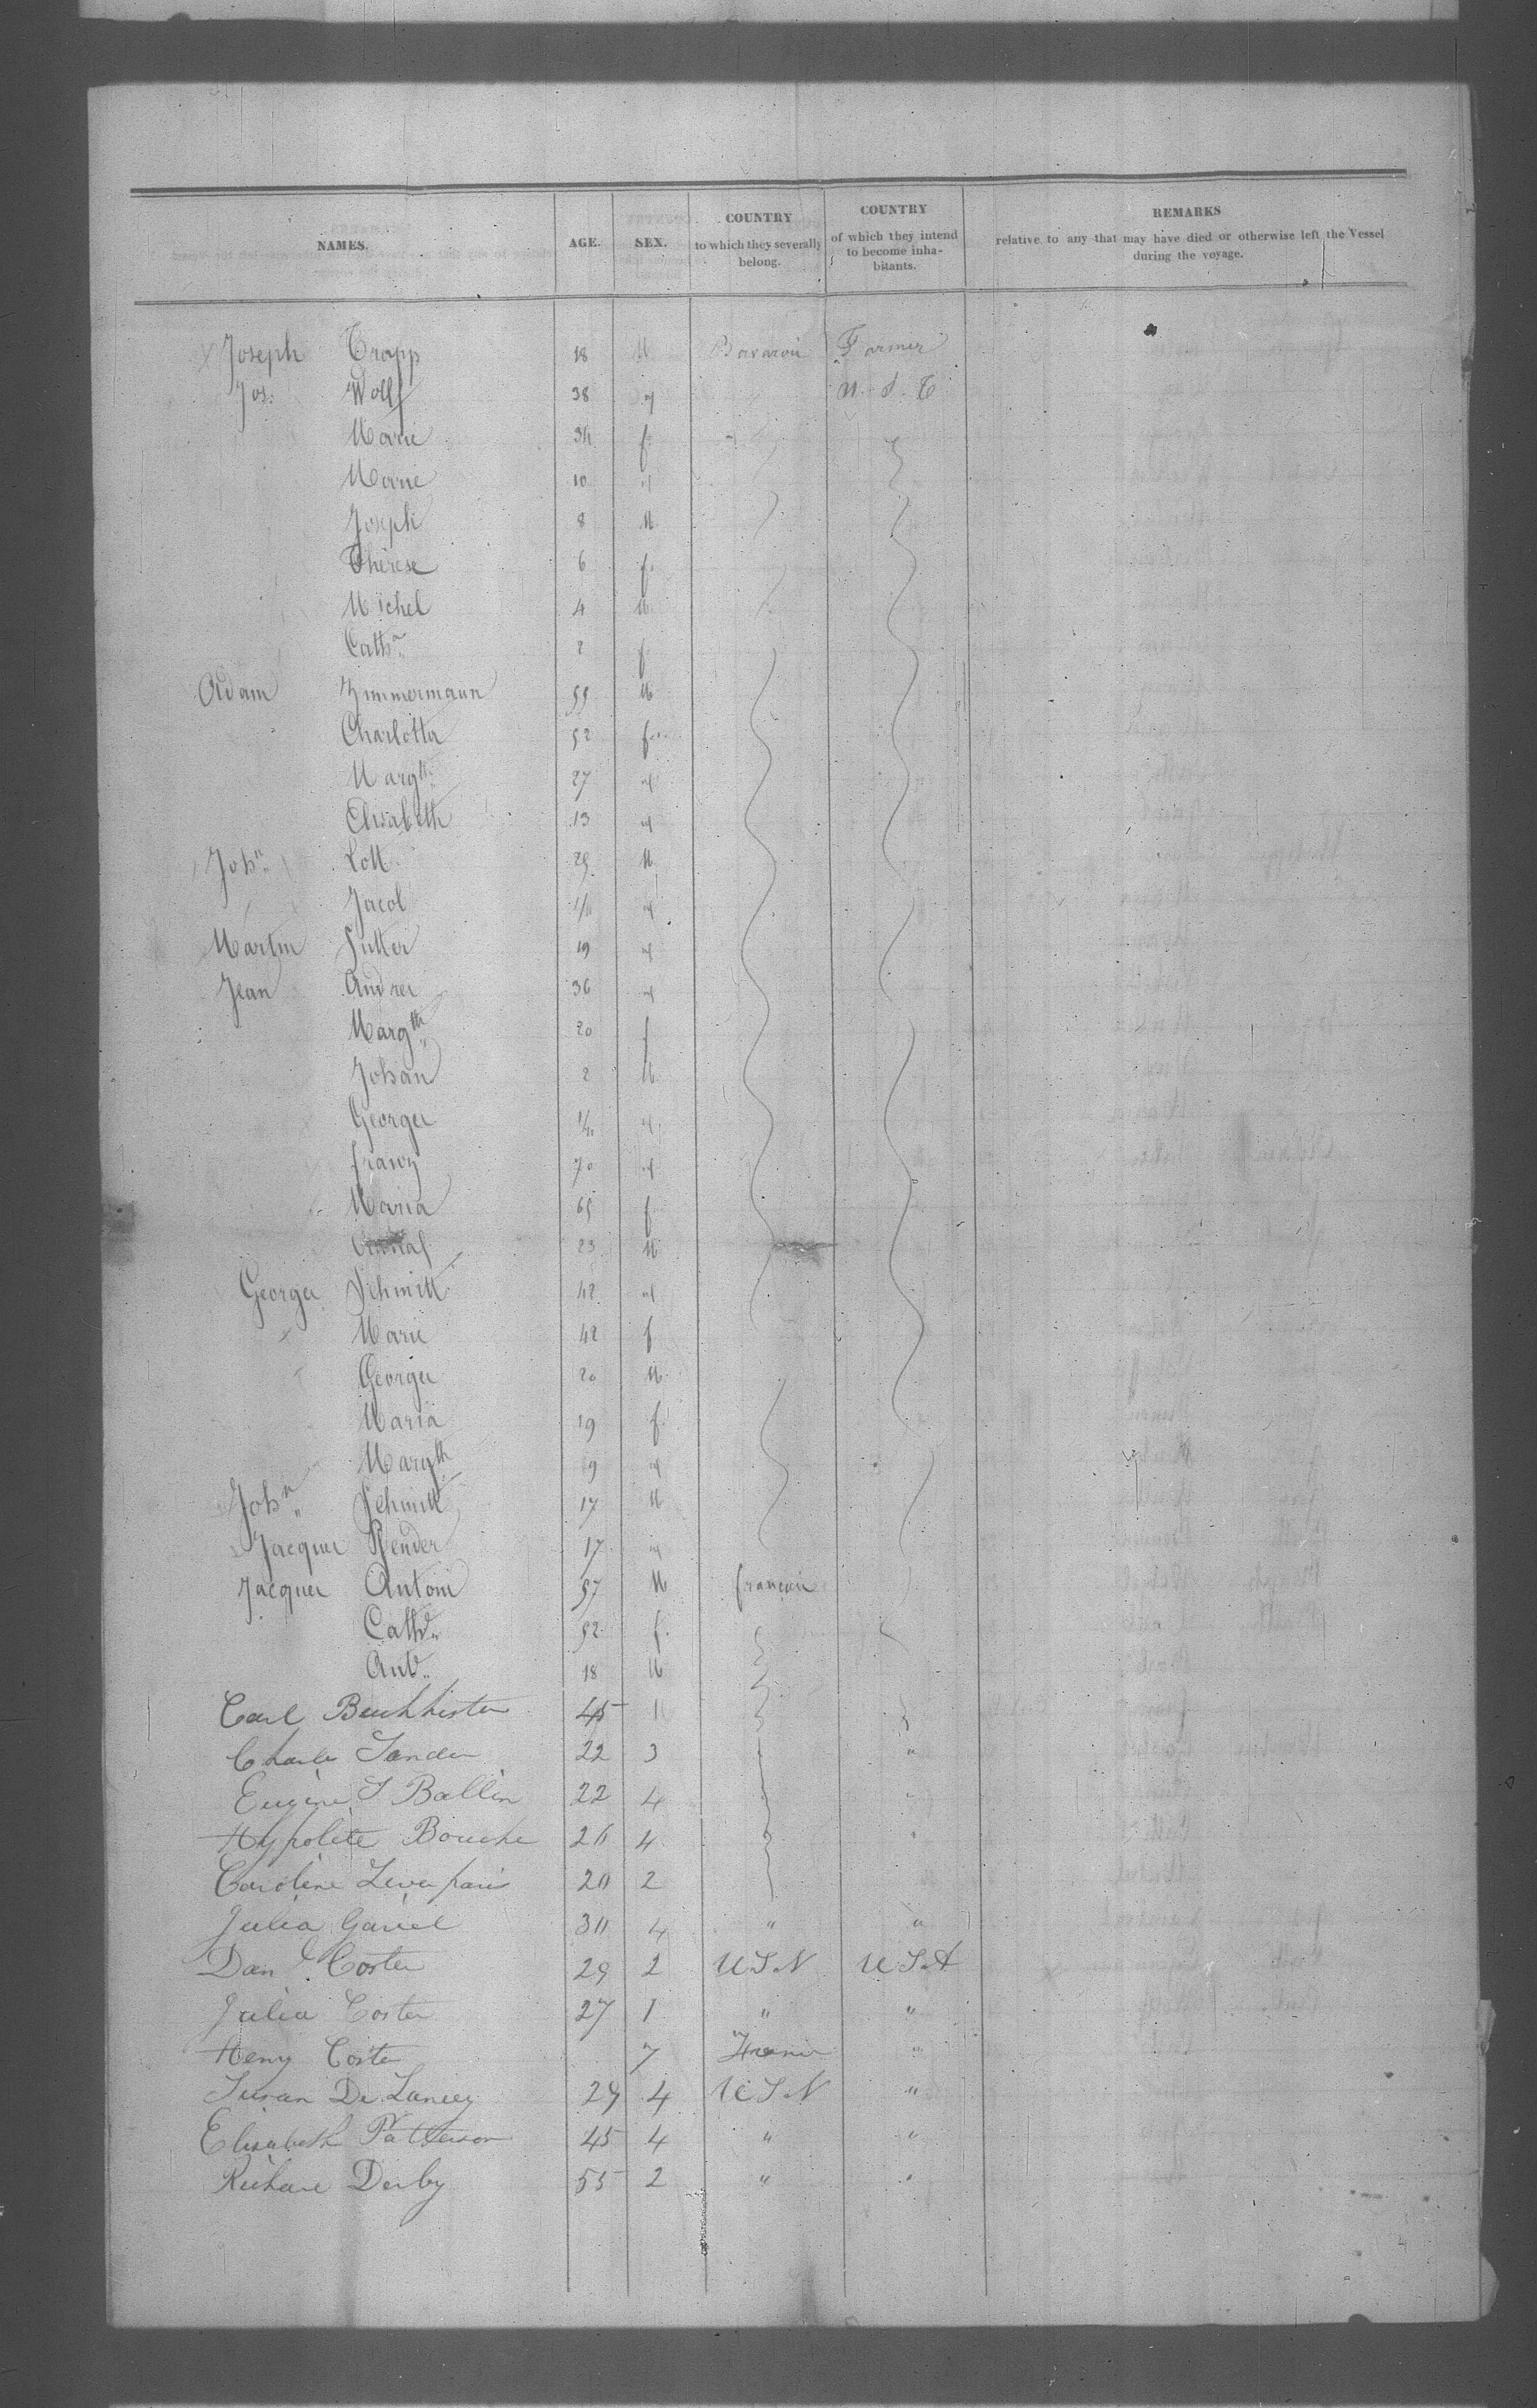 NAMES. AGE. SEX. COUNTRY to which they severally belong. COUNTRY of which they intend to become inhabitants. REMARKS relative to any that may have died or otherwise left the Vessel during the voyage.
Joseph Trapp 18 M Bavaroi Farmer
Jos. Wolf 38 " U. S. T.
Marie 34 f
Marie 10 "
Joseph 8 M
Thérèse 6 f
Michel 4 M
Cathn 2 f
Adam Zimmermann 55 M
Charlotta 52 f
Margth 27 "
Elisabeth 13 "
John Lott 29 M
Jacob 1/11 "
Martin Sutter 19 "
Jean Andrei 36 "
Margth 20 f
Johan 2 M
George "
franz 70 "
Maria 65 f
23 M
George Schmitt 42 "
Marie 42 f
George 20 M
Maria 19 f
Margth 9 "
John Schmitt 17 M
Jacques Render 17 "
Jacques Antoni 57 M francais
Cath 52 f
Ant 18 M
Carl 45
Charles Sander 22 3 "
Eugene S Ballin 22 4 "
Hypolite Bouche 26 4 "
Caroline 20 2
Julia Gariel 30 4 " "
Danl Coster 29 2 U S N U S A
Julia Coster 27 1 " "
Henry Coster 7 France "
Susan De Lancey 29 4 U S N "
Elisabeth Patterson 45 4 " "
Richard Derby 55 2 " "